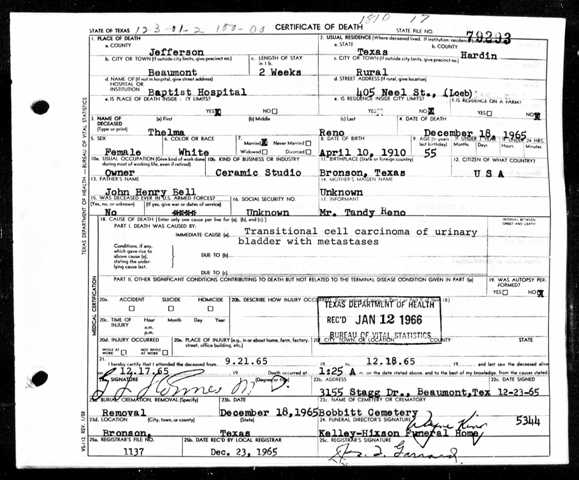 1810 17
STATE OF TEXAS 123-01-2 150-00 CERTIFICATE OF DEATH STATE FILE NO. 79293
1. PLACE OF DEATH
a. COUNTY
Jefferson
2. USUAL RESIDENCE (Where deceased lived. If institution: residence before admission)
a. STATE
Texas
b. COUNTY
Hardin
b. CITY OR TOWN (If outside city limits, give precinct no.)
Beaumont
c. LENGTH OF STAY
in 1 b.
2 Weeks
c. CITY OR TOWN (If outside city limits, give precinct no.)
Rural
d. NAME OF (If not in hospital, give street address)
HOSPITAL OR
INSTITUTION
Baptist Hospital
d. STREET ADDRESS (If rural, give location)
405 Neel St., (Loeb)
e. IS PLACE OF DEATH INSIDE CITY LIMITS?
YES X NO
e. IS RESIDENCE INSIDE CITY LIMITS?
YES NO X
f. IS RESIDENCE ON A FARM?
3. NAME OF
DECEASED
(Type or print)
(a) First
Thelma
(b) Middle
(c) Last
Reno
4. DATE OF DEATH
December 18, 1965
5. SEX
Female
6. COLOR OR RACE
White
7. Married X Never Married
Widowed Divorced
8. DATE OF BIRTH
April 10, 1910
9. AGE
55
10a. USUAL OCCUPATION (Give kind of work done
during most of working life, even if retired)
Owner
10b. KIND OF BUSINESS OR INDUSTRY
Ceramic Studio
11. BIRTHPLACE (State or foreign country)
Bronson, Texas
12. CITIZEN OF WHAT COUNTRY?
U S A
13. FATHER'S NAME
John Henry Bell
14. MOTHER'S MAIDEN NAME
Unknown
15. WAS DECEASED EVER IN U.S. ARMED FORCES?
No
16. SOCIAL SECURITY NO.
Unknown
17. INFORMANT
Mr. Tandy Reno
18. CAUSE OF DEATH (Enter only one cause per line for (a), (b), and (c).)
PART I. DEATH WAS CAUSED BY:
IMMEDIATE CAUSE (a)
Transitional cell carcinoma of urinary
bladder with metastases
INTERVAL BETWEEN
ONSET AND DEATH
Conditions, if any,
which gave rise to
above cause (a),
stating the under-
lying cause last.
DUE TO (b)
DUE TO (c)
PART II. OTHER SIGNIFICANT CONDITIONS CONTRIBUTING TO DEATH BUT NOT RELATED TO THE TERMINAL DISEASE CONDITION GIVEN IN PART I(a)
19. WAS AUTOPSY PER-
FORMED?
YES NO X
20a. ACCIDENT SUICIDE HOMICIDE
20b. DESCRIBE HOW INJURY
20c. TIME OF
INJURY
Hour Month Day Year
a.m.
p.m.
TEXAS DEPARTMENT OF HEALTH
REC'D JAN 12 1966
BUREAU OF VITAL STATISTICS
20d. INJURY OCCURRED
WHILE AT WORK NOT WHILE AT WORK
20e. PLACE OF INJURY (e.g., in or about home, farm, factory,
street, office building, etc.)
20f. CITY, TOWN, OR LOCATION
COUNTY
STATE
21. I hereby certify that I attended the deceased from 9.21.65 to 12.18.65 and last saw the deceased alive
on 12.17.65 Death occurred at 1:25 A m. on the date stated above, and to the best of my knowledge, from the causes stated.
22a. SIGNATURE
(Degree or title)
22b. ADDRESS
3155 Stagg Dr., Beaumont,Tex
22c. DATE SIGNED
12-23-65
23a. BURIAL, CREMATION, REMOVAL (Specify)
Removal
23b. DATE
December 18,1965
23c. NAME OF CEMETERY OR CREMATORY
Bobbitt Cemetery
23d. LOCATION (City, town, or county) (State)
Bronson, Texas
24. FUNERAL DIRECTOR'S SIGNATURE
Wayne King 5344
Kelley-Hixson Funeral Home
25a. REGISTRAR'S FILE NO.
1137
25b. DATE REC'D BY LOCAL REGISTRAR
Dec. 23, 1965
25c. REGISTRAR'S SIGNATURE
TEXAS DEPARTMENT OF HEALTH — BUREAU OF VITAL STATISTICS
MEDICAL CERTIFICATION